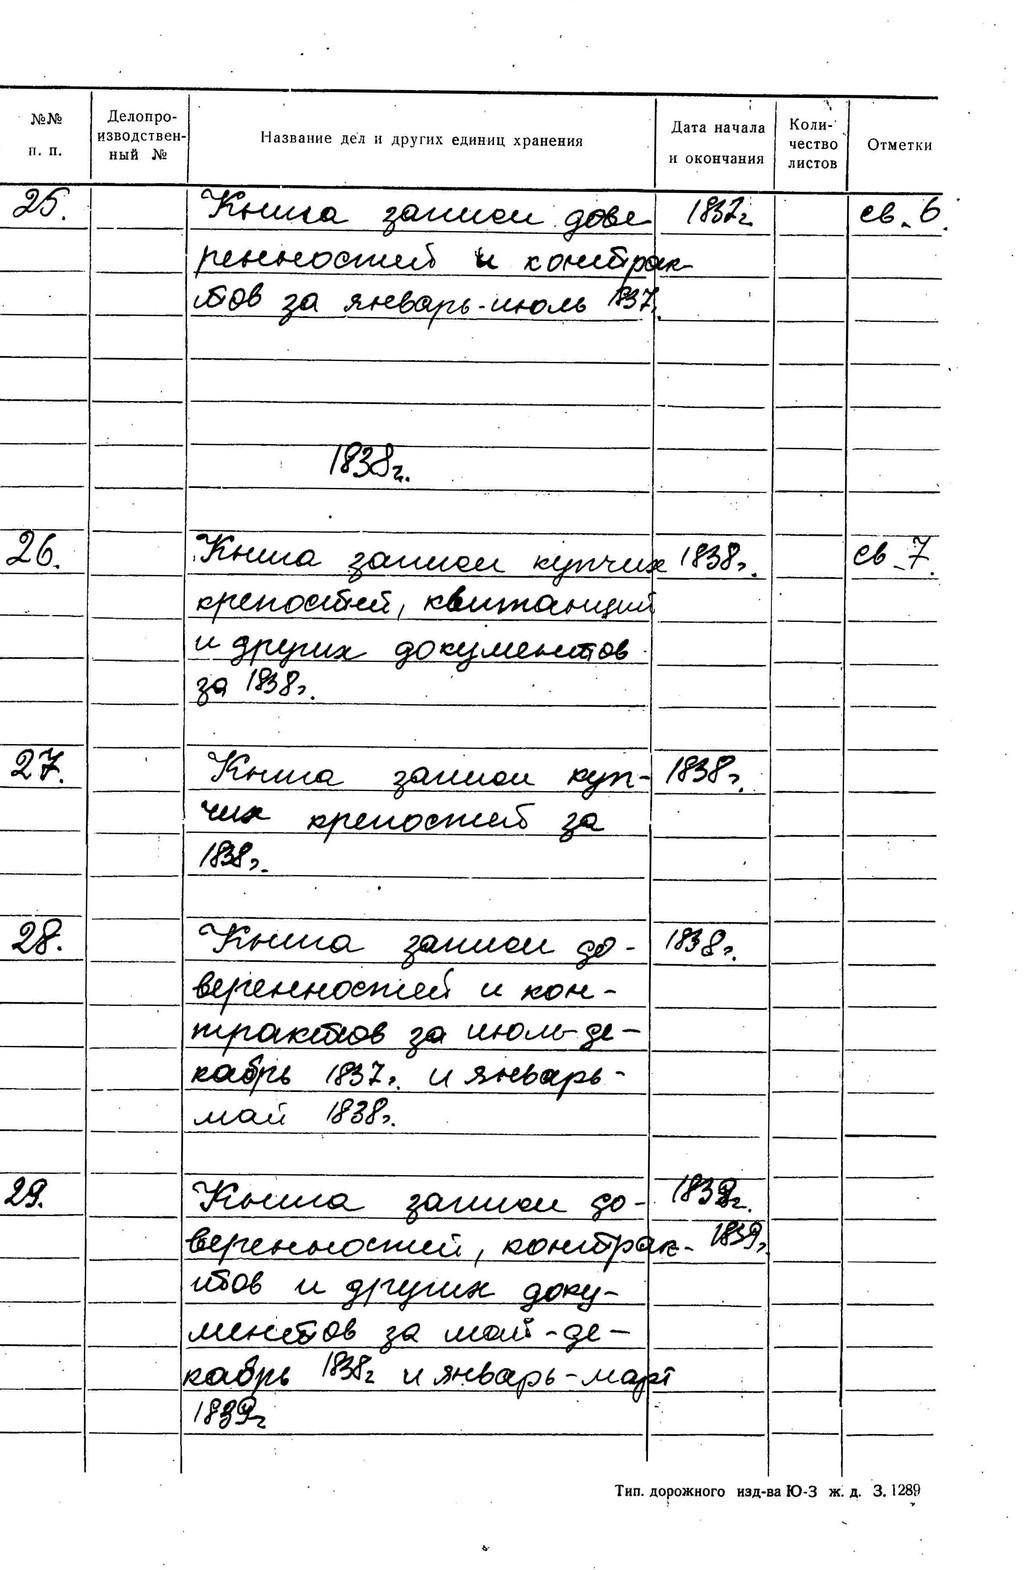 №№ п. п. Делопро-изводствен-ный № Название дел и других единиц хранения Дата начала и окончания Коли-чество листов Отметки
25. Книга записи дове 1837г. св. 6.
ренностей и контрак-
тов за январь-июль 1837
1838г.
26. Книга записи купчих 1838г. св. 7.
крепостей, квитанций
и других документов
за 1838г.
27. Книга записи куп- 1838г.
чих крепостей за
1838г.
28. Книга записи до- 1838г.
веренностей и кон-
трактов за июль-де-
кабрь 1837г. и январь-
май 1838г.
29. Книга записи до- 1838г.
веренностей, контрак- 1839г.
тов и других доку-
ментов за май-де-
кабрь 1838г и январь-март
1839г
Тип. дорожного изд-ва Ю-З ж. д. З. 1289